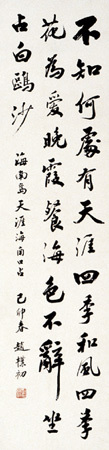 不知何處有天涯四季和風四季
花為愛晚霞餐海色不辭坐
占白鷗沙
海南島天涯海角口占
己卯春 趙樸初